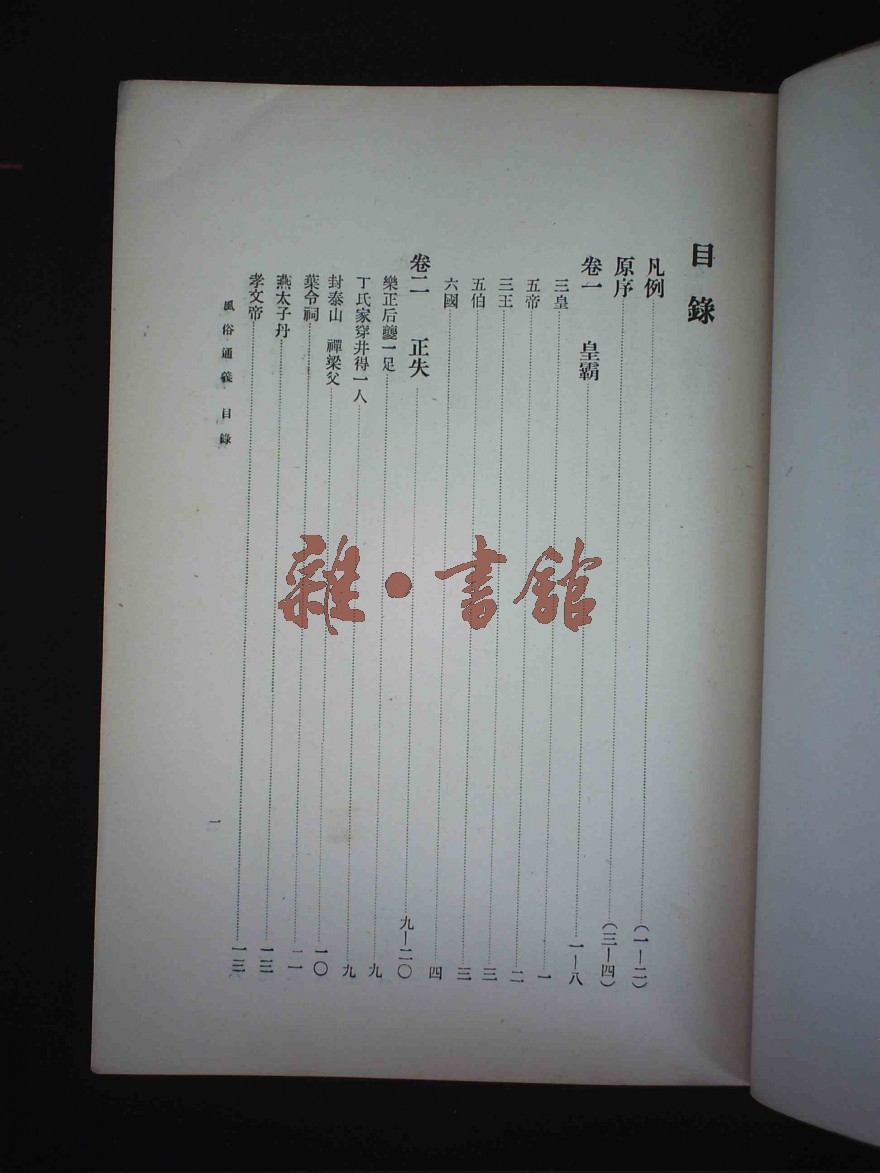 目錄
凡例……(一—二)
原序……(三—四)
卷一 皇霸……一—八
三皇……一
五帝……二
三王……三
五伯……三
六國……四
卷二 正失……九—二〇
樂正后夔一足……九
丁氏家穿井得一人……九
封泰山 禪梁父……一〇
葉令祠……一一
燕太子丹……一二
孝文帝……一三
風俗通義 目錄
一
雜·書館